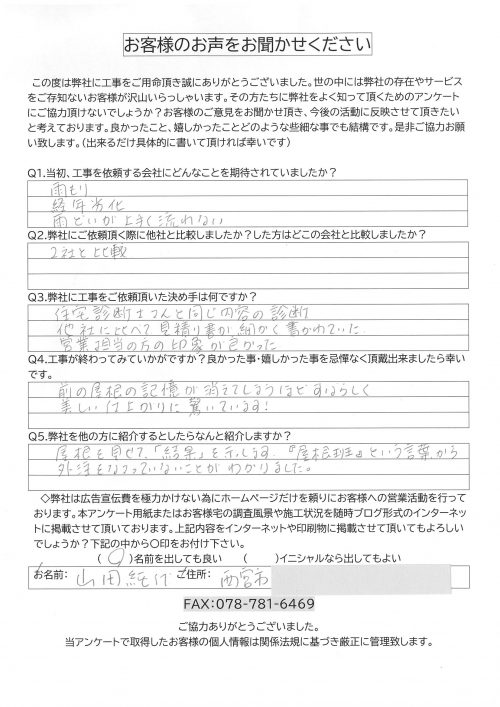 お客様のお声をお聞かせください
この度は弊社に工事をご用命頂き誠にありがとうございました。世の中には弊社の存在やサービス
をご存知ないお客様が沢山いらっしゃいます。その方たちに弊社をよく知って頂くためのアンケート
にご協力頂けないでしょうか？お客様のご意見をお聞かせ頂き、今後の活動に反映させて頂きたい
と考えております。良かったこと、嬉しかったことどのような些細な事でも結構です。是非ご協力お願
い致します。（出来るだけ具体的に書いて頂ければ幸いです）
Q1.当初、工事を依頼する会社にどんなことを期待されていましたか？
雨もり
経年劣化
雨どいが上手く流れない
Q2.弊社にご依頼頂く際に他社と比較しましたか？した方はどこの会社と比較しましたか？
2社と比較
Q3.弊社に工事をご依頼頂いた決め手は何ですか？
住宅診断士さんと同じ内容の診断
他社に比べて見積り書が細かく書かれていた
営業担当の方の印象が良かった
Q4.工事が終わってみていかがですか？良かった事・嬉しかった事を忌憚なく頂戴出来ましたら幸い
です。
前の屋根の記憶が消えてしまうほどすばらしく
美しい仕上がりに驚いています!
Q5.弊社を他の方に紹介するとしたらなんと紹介しますか？
屋根を見せて、「結果」を示します。『屋根班』という言葉から
外注をなさっていないことがわかりました。
◇弊社は広告宣伝費を極力かけない為にホームページだけを頼りにお客様への営業活動を行って
おります。本アンケート用紙またはお客様宅の調査風景や施工状況を随時ブログ形式のインターネッ
トに掲載させて頂いております。上記内容をインターネットや印刷物に掲載させて頂いてもよろしい
でしょうか？下記の中から〇印をお付け下さい。
（〇）名前を出しても良い （ ）イニシャルなら出してもよい
お名前： 山田 ご住所： 西宮市
FAX：078-781-6469
ご協力ありがとうございました。
当アンケートで取得したお客様の個人情報は関係法規に基づき厳正に管理致します。